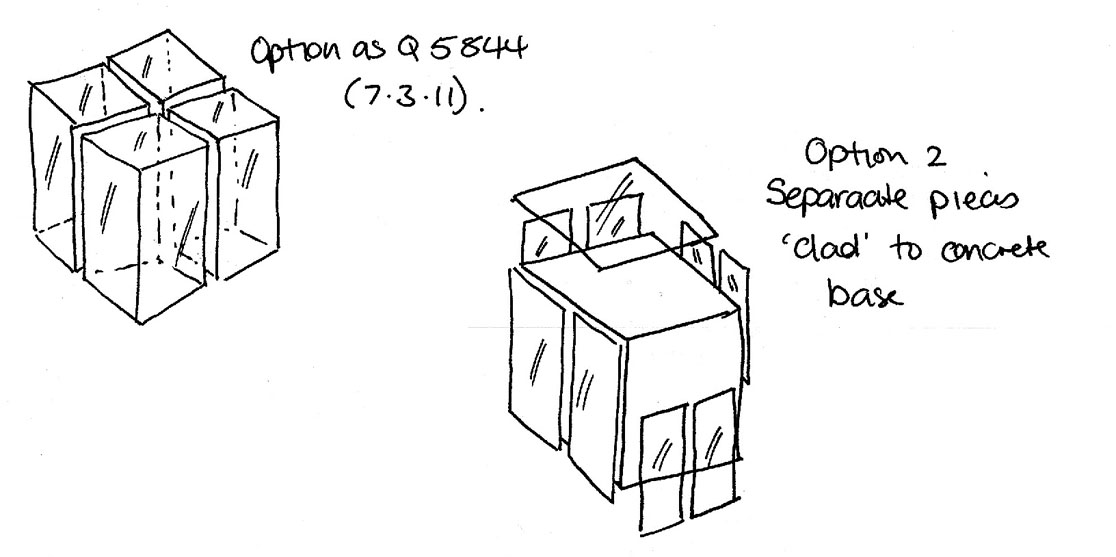 Option as Q 5844
(7.3.11).
Option 2
Separaate pieces
'clad' to concrete
base